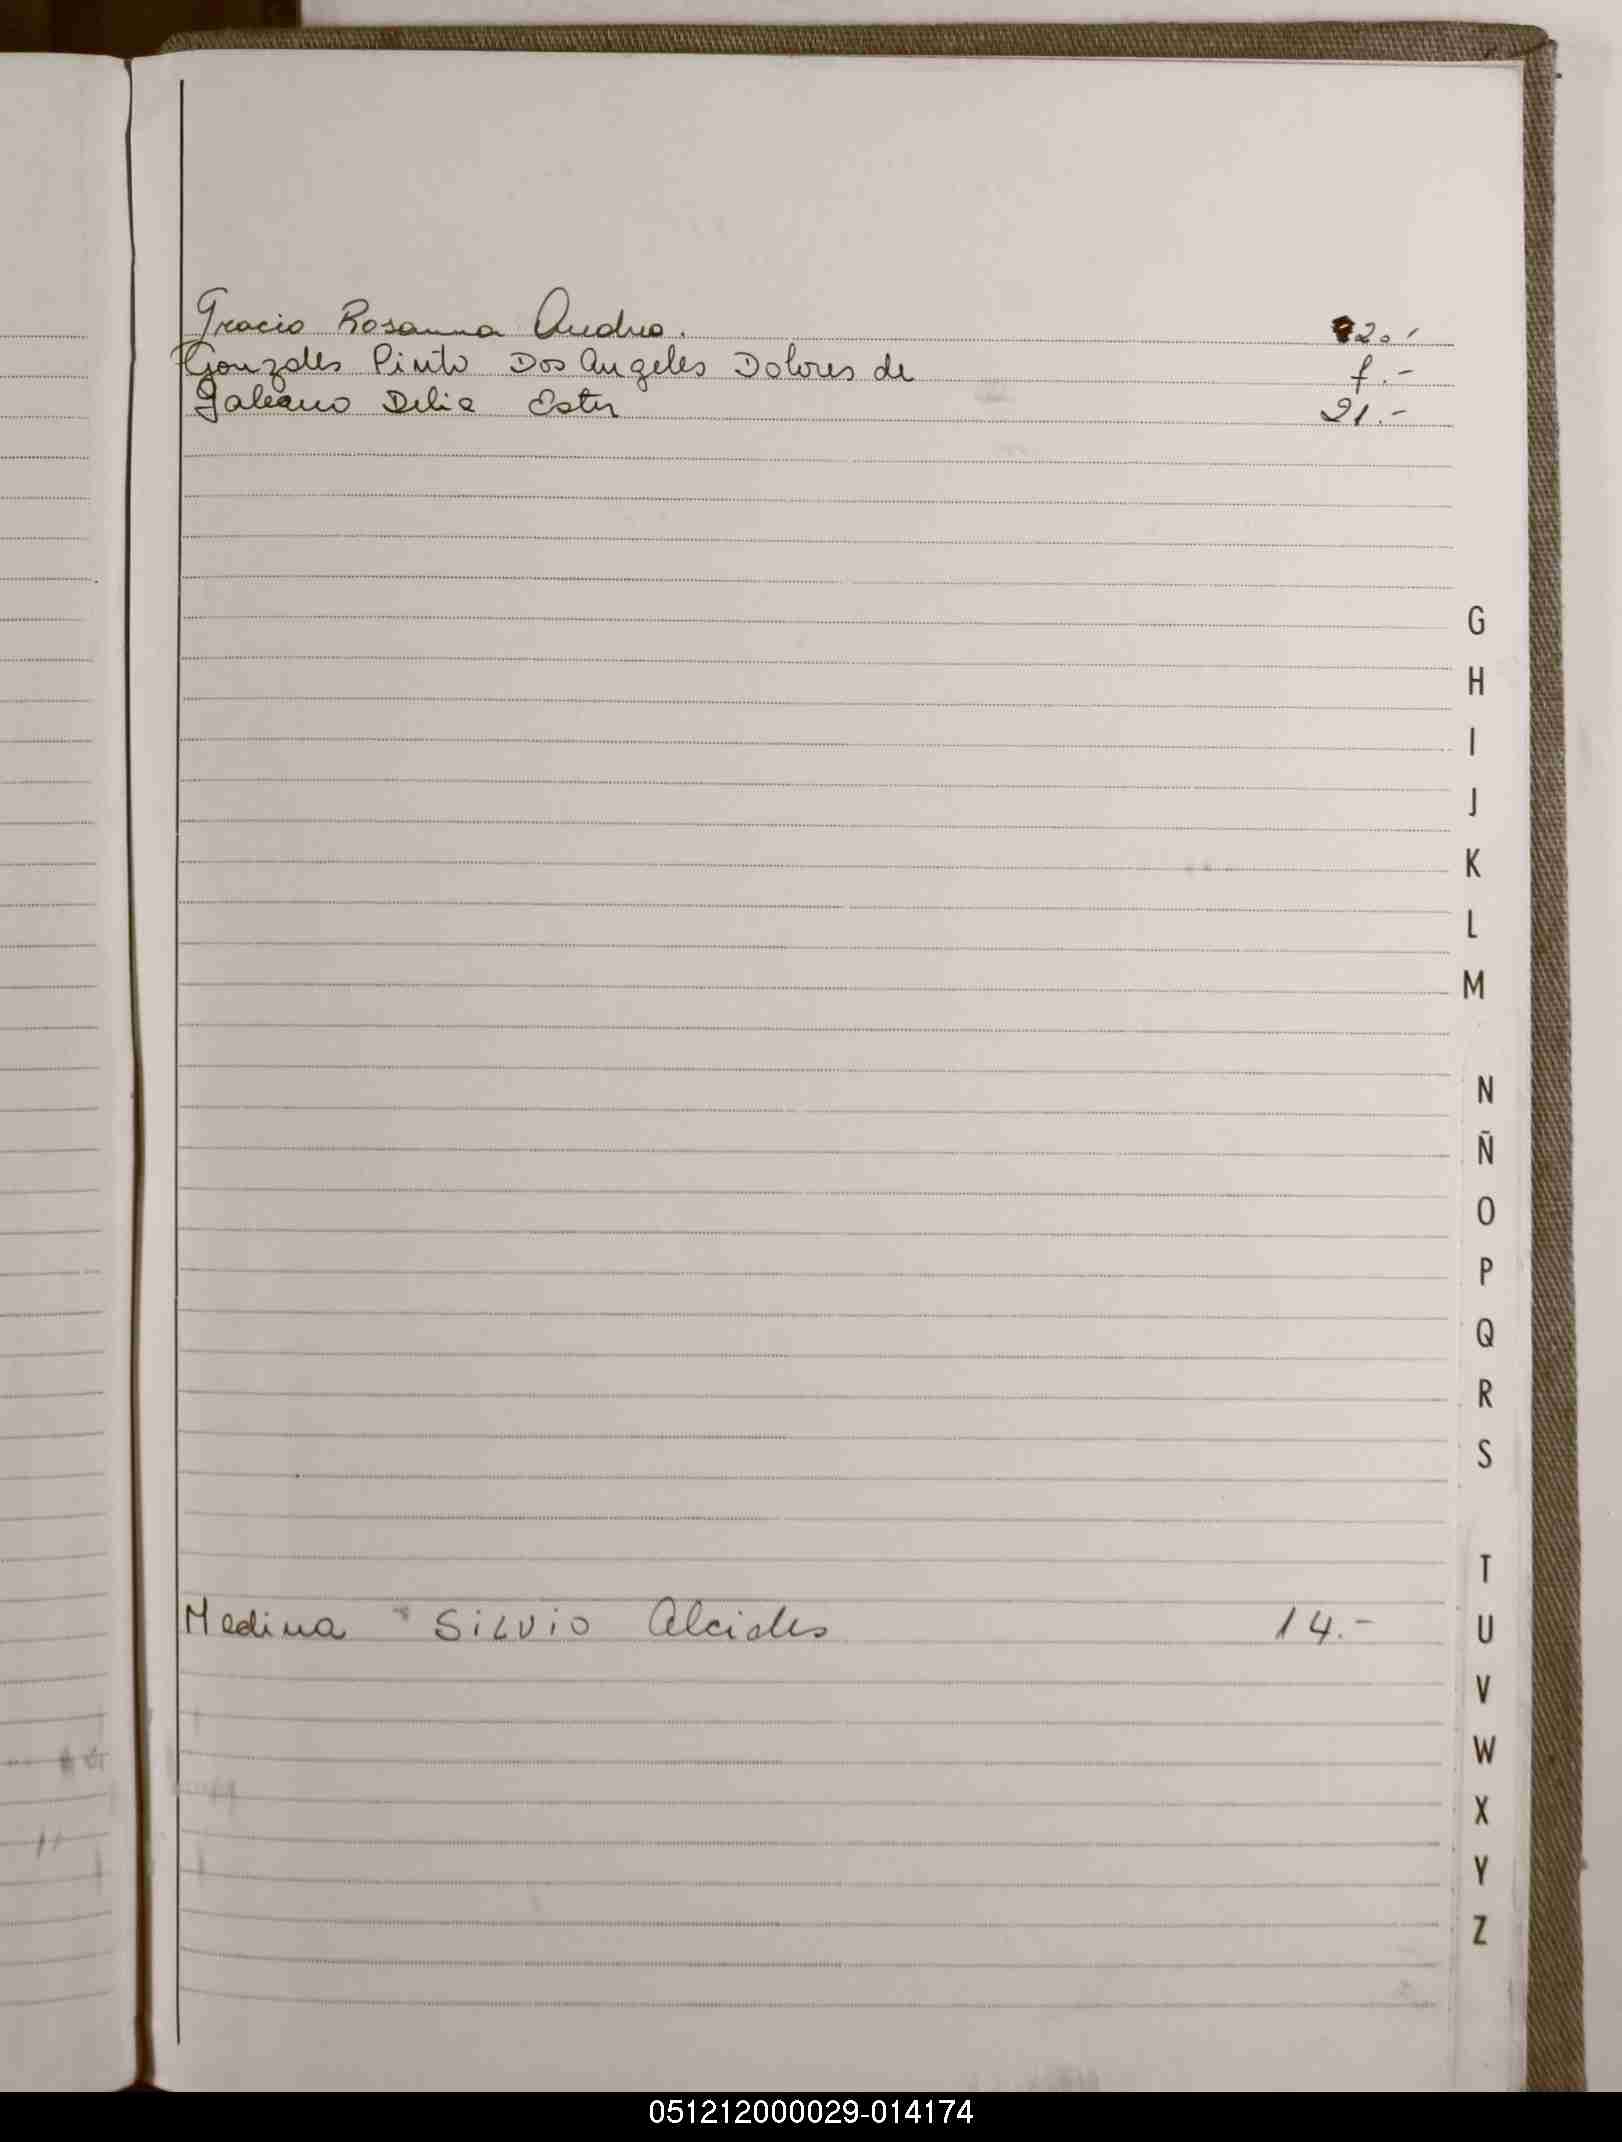 Gracia Rosanna Andrea. 20.-
Gonzales Pinto Dos Angeles Dolores de f.-
Galeano Delia Ester 21.-
G
H
I
J
K
L
M
N
Ñ
O
P
Q
R
S
T
Medina Silvio Alcides 14.-
U
V
W
X
Y
Z
051212000029-014174